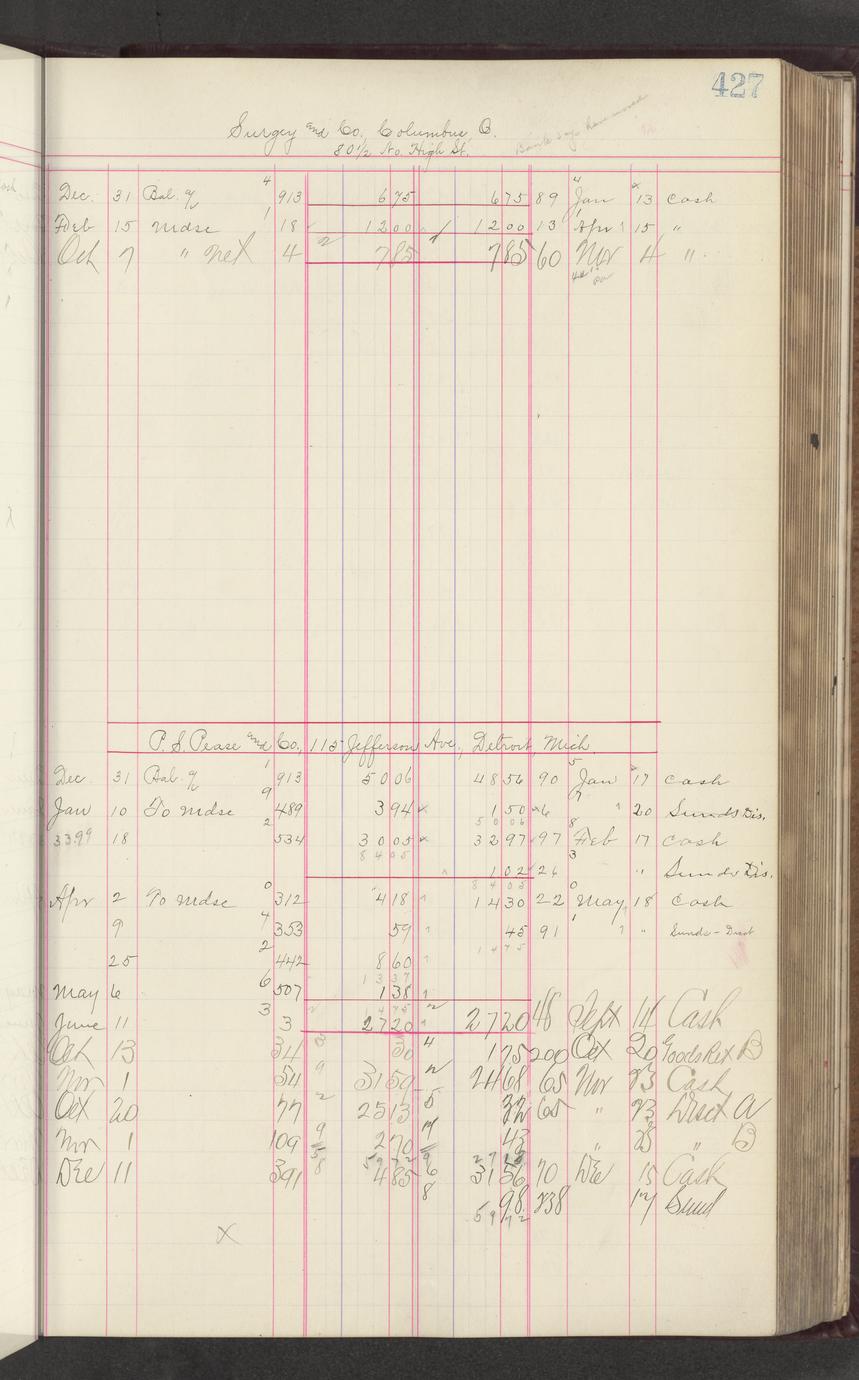 427
Surgey and Co., Columbus, O.
80 1/2 No. High St.
Dec. 31 Bal. of 4 913 675 675 89 Jan 13 cash
Feb 15 Mdse 1 18 1200 1200 13 Apr 15 "
Oct 7 " net 4 785 785 60 Nov 4 "
P. S. Pease and Co., 115 Jefferson Ave., Detroit, Mich.
Dec. 31 Bal. of 1 913 5006 4856 90 5 Jan 17 cash
Jan 10 To Mdse 9 489 394 150 6 7 " 20 Sunds Dis.
5006
33.99 18 2 534 3005 3297 97 8 Feb 17 cash
8405
102 26 3 " Sunds Dis.
8403
Apr 2 To Mdse 0 312 418 1430 22 0 May 18 cash
9 4 353 59 45 91 1 " Sunds - Disct
1475
25 2 442 860
1337
May 6 6 507 138
1475
June 11 3 3 2720 2720 48 Sept 14 Cash
Oct 13 34 30 4 175 200 Oct 20 Goods Ret B
Nov 1 54 9 3159 2468 65 Nov 23 Cash
Oct 20 77 2 2513 5 32 65 " 23 Disct A
Nov 1 109 9 270 43 " 23 " B
5972
Dec 11 391 8 485 6 3156 70 Dec 15 Cash
8 98 238 17 Sund
5972
X